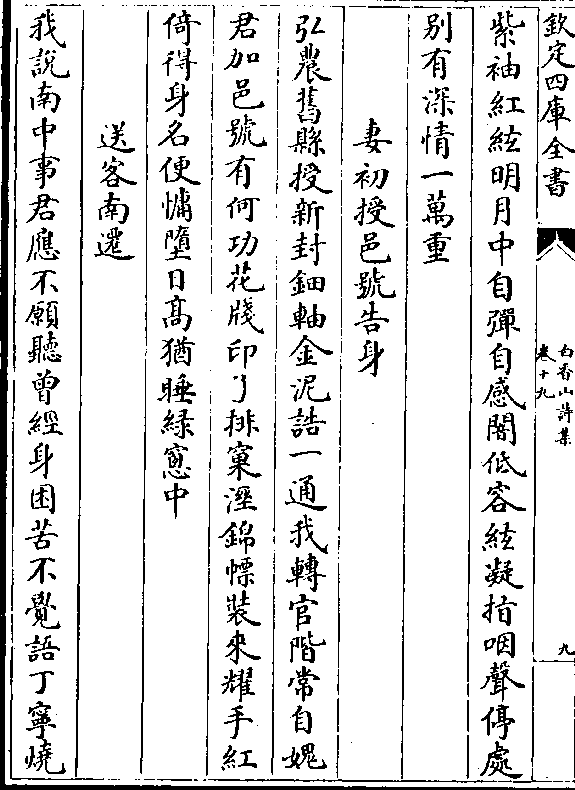 欽定四庫全書
白香山詩集
卷十九
九
紫袖紅絃明月中自彈自感闇低容絃凝指咽聲停處
别有深情一萬重
妻初授邑號告身
弘農舊縣授新封鈿軸金泥誥一通我轉官階常自媿
君加邑號有何功花牋印了排窠溼錦褾裝來耀手紅
倚得身名便慵墮日髙猶睡緑窻中
送客南遷
我說南中事君應不願聽曾經身困苦不覺語丁寧燒